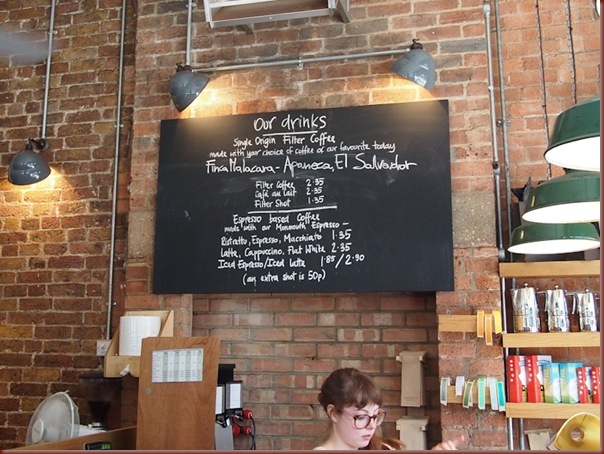 Our drinks
Single Origin Filter Coffee
made with your choice of coffee or our favourite today
Finca Malacara - Apaneca, El Salvador
Filter Coffee 2.35
Café au Lait 2.35
Filter Shot 1.35
Espresso based Coffee
made with our Monmouth Espresso -
Ristretto, Espresso, Macchiato 1.35
Latte, Cappuccino, Flat White 2.35
Iced Espresso/Iced Latte 1.85 / 2.90
(an extra shot is 50p)